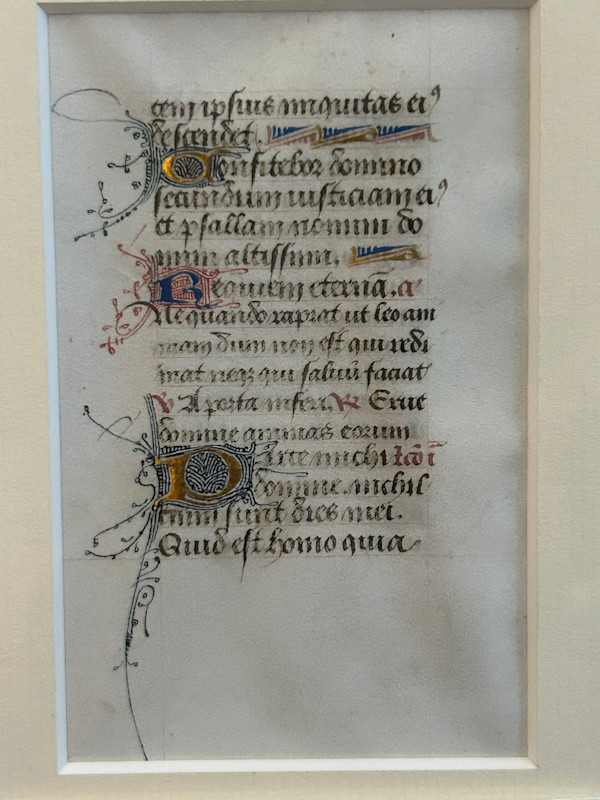 cem ipsius iniquitas ei⁹
descendet.
Confitebor domino
secundum iusticiam ei⁹
et psallam nomini do
mini altissimi.
Requiem eternā. a
Ne quando rapiat ut leo am
mam dum non est qui redi
mat neqꝫ qui saluū faciat
V A porta inferi. R Erue
domine animas eorum
Parce michi lc̄o ī
domine. nichil
enim sunt dies mei.
Quid est homo quia